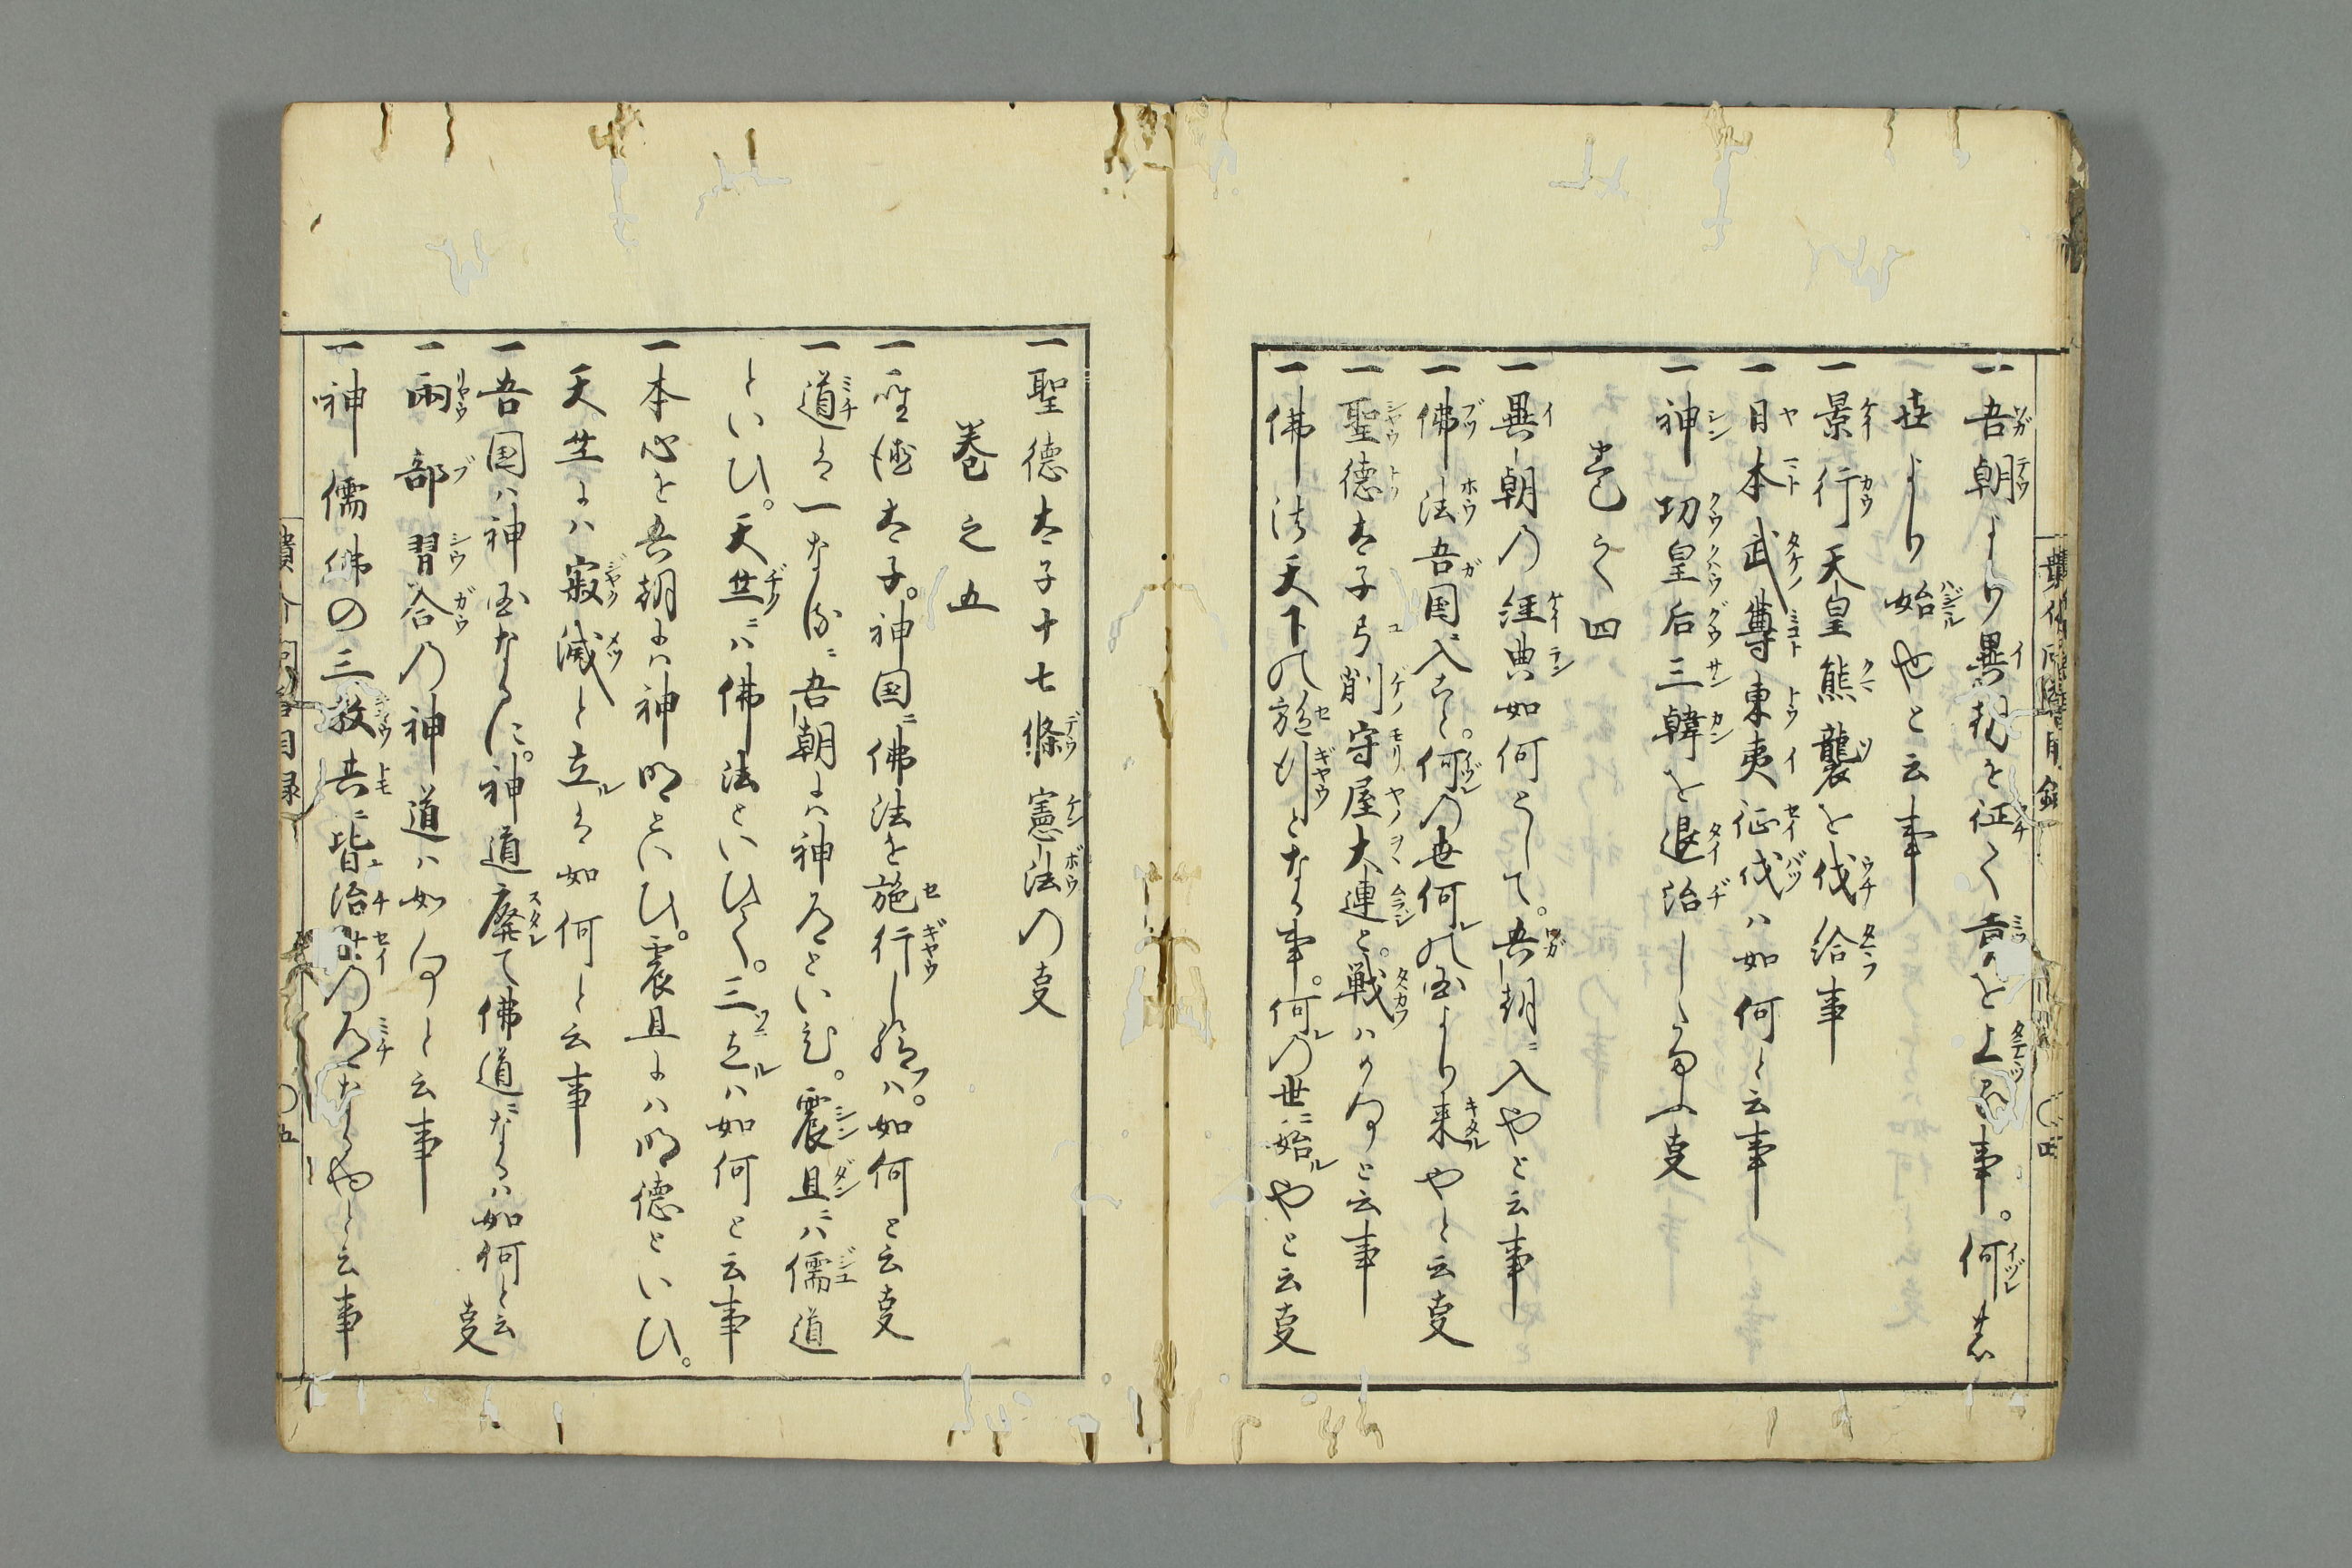 一吾朝より異朝を征て貢を上る事。何れの
世より始也と云事
一景行天皇熊襲を伐給事
一日本武尊東夷征伐ハ如何と云事
一神功皇后三韓を退治し給ふ叓
巻之四
一異朝の経典如何として。吾朝ニ入やと云事
一佛法吾国ニ入こと。何の世何れの国より来やと云叓
一聖徳太子弓削守屋大連と。戦ハ如何と云事
一佛法天下に施行となる事。何の世ニ始ルやと云叓
一聖徳太子十七條憲法の叓
巻之五
一聖徳太子。神国ニ佛法を施行し給フハ。如何と云叓
一道は一なるニ吾朝にハ神道といひ。震旦ニハ儒道
といひ。天竺ニハ佛法といひて。三ツニ立ルハ如何と云事
一本心を吾朝にハ神明といひ。震旦にハ明徳といひ。
天竺にハ寂滅と立ルは如何と云事
一吾国ハ神国なるに。神道廃て佛道ニなるハ如何と云叓
一兩部習合の神道ハ如何と云事
一神儒佛の三教共ニ皆治世の道なるやと云事